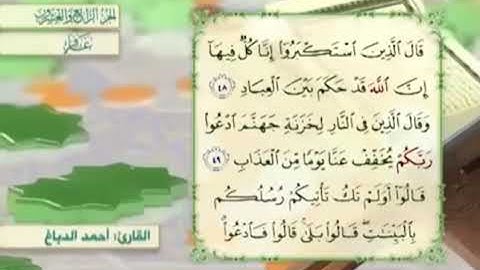 الجزء الرابع والعشرون
سورة غافر
قَالَ ٱلَّذِينَ ٱسْتَكْبَرُوٓا۟ إِنَّا كُلٌّ فِيهَآ
إِنَّ ٱللَّهَ قَدْ حَكَمَ بَيْنَ ٱلْعِبَادِ ٤٨
وَقَالَ ٱلَّذِينَ فِى ٱلنَّارِ لِخَزَنَةِ جَهَنَّمَ ٱدْعُوا۟
رَبَّكُمْ يُخَفِّفْ عَنَّا يَوْمًا مِّنَ ٱلْعَذَابِ ٤٩
قَالُوٓا۟ أَوَلَمْ تَكُ تَأْتِيكُمْ رُسُلُكُم
بِٱلْبَيِّنَٰتِ ۖ قَالُوا۟ بَلَىٰ ۚ قَالُوا۟ فَٱدْعُوا۟ ۗ
القارئ: أحمد الدباغ